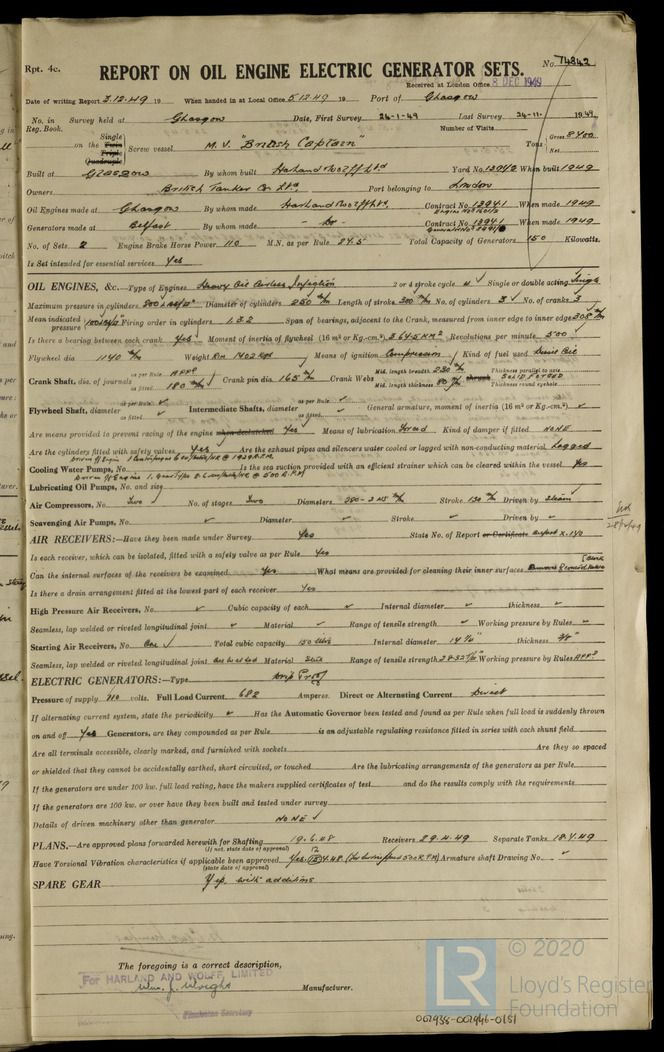 Rpt. 4c.
REPORT ON OIL ENGINE ELECTRIC GENERATOR SETS.
No. 74842
Received at London Office 8 DEC 1949
Date of writing Report 3.12.49 19 When handed in at Local Office 5.12.49 19 Port of Glasgow
No. in Survey held at Glasgow Date, First Survey 24-1-49 Last Survey 24-11- 1949
Reg. Book. Number of Visits
Single
on the Twin Triple Quadruple Screw vessel M.V. "British Captain" Tons Gross 8400 Net
Built at Glasgow By whom built Harland & Wolff Ltd Yard No. When built 1949
Owners British Tanker Co Ltd Port belonging to London
Oil Engines made at Glasgow By whom made Harland & Wolff Ltd. Contract No. 12941 When made 1949
Generators made at Belfast By whom made - Do - Contract No. 12941 When made 1949
No. of Sets 2 Engine Brake Horse Power 110 M.N. as per Rule 27.5 Total Capacity of Generators 150 Kilowatts.
Is Set intended for essential services Yes
OIL ENGINES, &c.—Type of Engines Heavy Oil Airless Injection 2 or 4 stroke cycle 4 Single or double acting Single
Maximum pressure in cylinders Diameter of cylinders 250 m/m Length of stroke 300 m/m No. of cylinders 3 No. of cranks 3
Mean indicated pressure Firing order in cylinders 1.3.2 Span of bearings, adjacent to the Crank, measured from inner edge to inner edge
Is there a bearing between each crank Yes Moment of inertia of flywheel (16 m² or Kg.-cm².) Revolutions per minute 500
Flywheel dia 1140 m/m Weight Means of ignition Compression Kind of fuel used Diesel Oil
Crank Shaft, dia. of journals as per Rule APPD as fitted 180 m/m Crank pin dia. 165 m/m Crank Webs Mid. length breadth 230 m/m Mid. length thickness 80 m/m Thickness parallel to axis Thickness round eyehole
Flywheel Shaft, diameter as per Rule as fitted Intermediate Shafts, diameter as per Rule as fitted General armature, moment of inertia (16 m² or Kg.-cm².)
Are means provided to prevent racing of the engine when declutched Yes Means of lubrication Forced Kind of damper if fitted NONE
Are the cylinders fitted with safety valves Yes Are the exhaust pipes and silencers water cooled or lagged with non-conducting material Lagged
Cooling Water Pumps, No. Is the sea suction provided with an efficient strainer which can be cleared within the vessel Yes
Lubricating Oil Pumps, No. and size
Air Compressors, No. Two No. of stages Two Diameters Stroke 130 m/m Driven by Steam
Scavenging Air Pumps, No. Diameter Stroke Driven by
AIR RECEIVERS:—Have they been made under Survey Yes State No. of Report or Certificate
Is each receiver, which can be isolated, fitted with a safety valve as per Rule Yes
Can the internal surfaces of the receivers be examined Yes What means are provided for cleaning their inner surfaces
Is there a drain arrangement fitted at the lowest part of each receiver Yes
High Pressure Air Receivers, No. Cubic capacity of each Internal diameter thickness
Seamless, lap welded or riveted longitudinal joint Material Range of tensile strength Working pressure by Rules
Starting Air Receivers, No. One Total cubic capacity 150 litres Internal diameter thickness
Seamless, lap welded or riveted longitudinal joint Material Steel Range of tensile strength Working pressure by Rules APPD
ELECTRIC GENERATORS:—Type Drip Proof
Pressure of supply 110 volts. Full Load Current 682 Amperes. Direct or Alternating Current Direct
If alternating current, state the periodicity Has the Automatic Governor been tested and found as per Rule when full load is suddenly thrown
on and off Yes Generators, are they compounded as per Rule is an adjustable regulating resistance fitted in series with each shunt field
Are all terminals accessible, clearly marked, and furnished with sockets Are they so spaced
or shielded that they cannot be accidentally earthed, short circuited, or touched Are the lubricating arrangements of the generators as per Rule
If the generators are under 100 kw. full load rating, have the makers supplied certificates of test and do the results comply with the requirements
If the generators are 100 kw. or over have they been built and tested under survey
Details of driven machinery other than generator NONE
PLANS.—Are approved plans forwarded herewith for Shafting 19.6.48 Receivers 29.4.49 Separate Tanks 18.7.49
(If not, state date of approval)
Have Torsional Vibration characteristics if applicable been approved Yes Armature shaft Drawing No.
(state date of approval)
SPARE GEAR Yes with additions
The foregoing is a correct description,
For HARLAND AND WOLFF, LIMITED
Wm. J. Wright Manufacturer.
Secretary
LR © 2020
Lloyd's Register
Foundation
002938-002946-0151